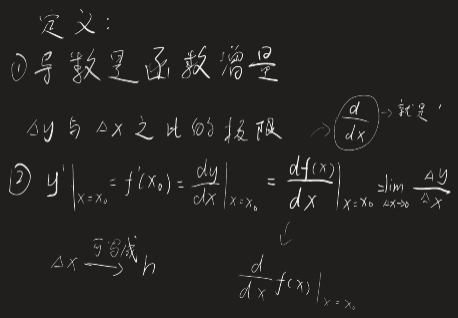 定义:
①导数是函数增量
Δy与Δx之比的极限 → d/dx → 就是 '
② y'|x=x₀ = f'(x₀) = dy/dx|x=x₀ = df(x)/dx|x=x₀ = lim Δx→0 Δy/Δx
Δx 可写成→ h
d/dx f(x)|x=x₀